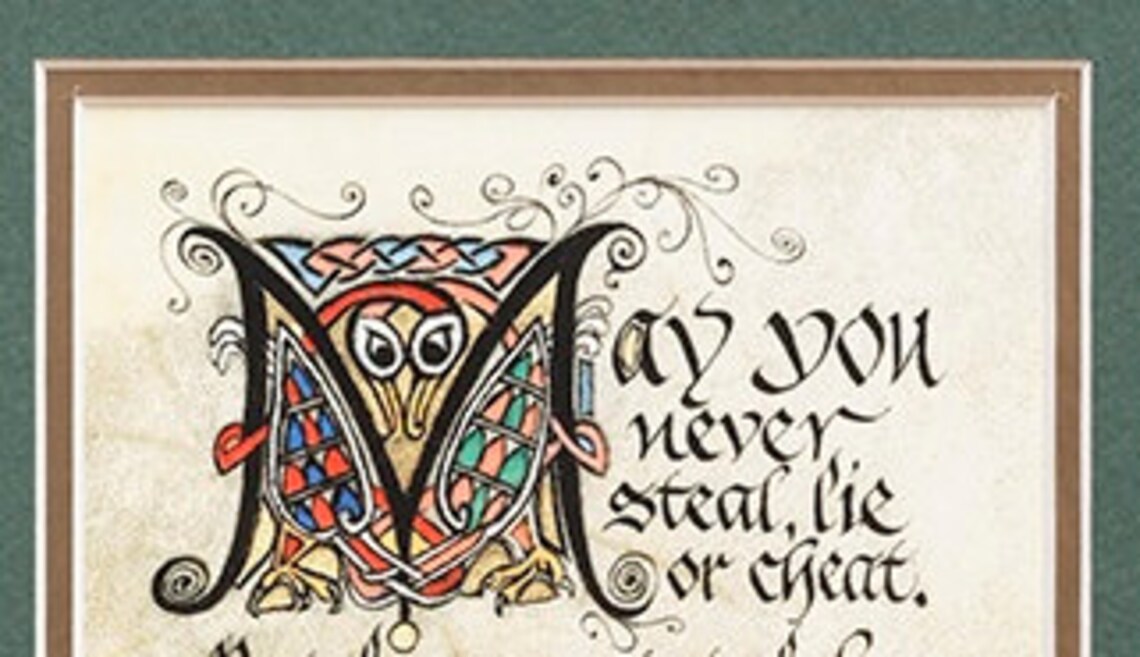 May you
never
steal, lie
or cheat.